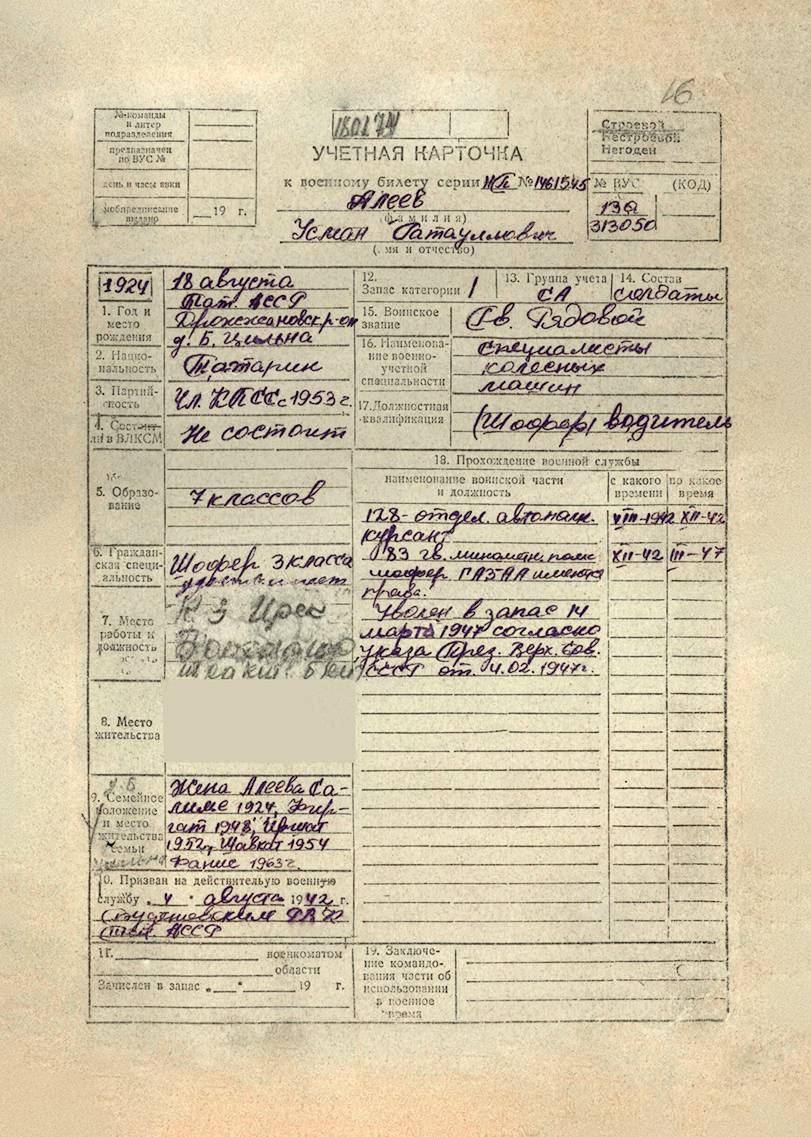 16
№ команды
и литер
подразделения
предназначен
по ВУС №
день и часы явки
мобпредписание
выдано
19 г.
УЧЕТНАЯ КАРТОЧКА
к военному билету серии № 1461545
Алеев
(фамилия)
Усман Гатауллович
(имя и отчество)
Строевой
Нестроевой
Негоден
№ ВУС (КОД)
313050
1924
18 августа
Тат. АССР
Дрожжановск. р-он
д. Б. Цильна
1. Год и
место
рождения
2. Нацио-
нальность
Татарин
3. Партий-
ность
Чл. КПСС с 1953 г.
4. Состоит
ли в ВЛКСМ
Не состоит
5. Образо-
вание
7 классов
6. Граждан-
ская специ-
альность
Шофер 3 класса
7. Место
работы и
должность
8. Место
жительства
9. Семейное
положение
и место
жительства
семьи
Жена Алеева Са-
1924,
1948,
1952, Шавкат 1954
1963 г.
10. Призван на действительую военную
службу 4 августа 1942 г.
АССР
11. военкоматом
области
Зачислен в запас „ “ 19 г.
12.
Запас категории 1
13. Группа учета
СА
14. Состав
солдаты
15. Воинское
звание
Гв. Рядовой
16. Наименова-
ние военно-
учетной
специальности
специалисты
колесных
машин
17. Должностная
квалификация
(Шофер) водитель
18. Прохождение военной службы
наименование воинской части
и должность
с какого
времени
по какое
время
128- отдел. автополк. VIII-1942 XII-42
курсант
83 гв. миномётн. полк XII-42 III-47
шофер ГАЗ-АА имеются
права.
Уволен в запас 14
марта 1947 согласно
Указа През. Верх. Сов.
СССР от 4.02.1947г.
19. Заключе-
ние командо-
вания части об
использовании
в военное
время